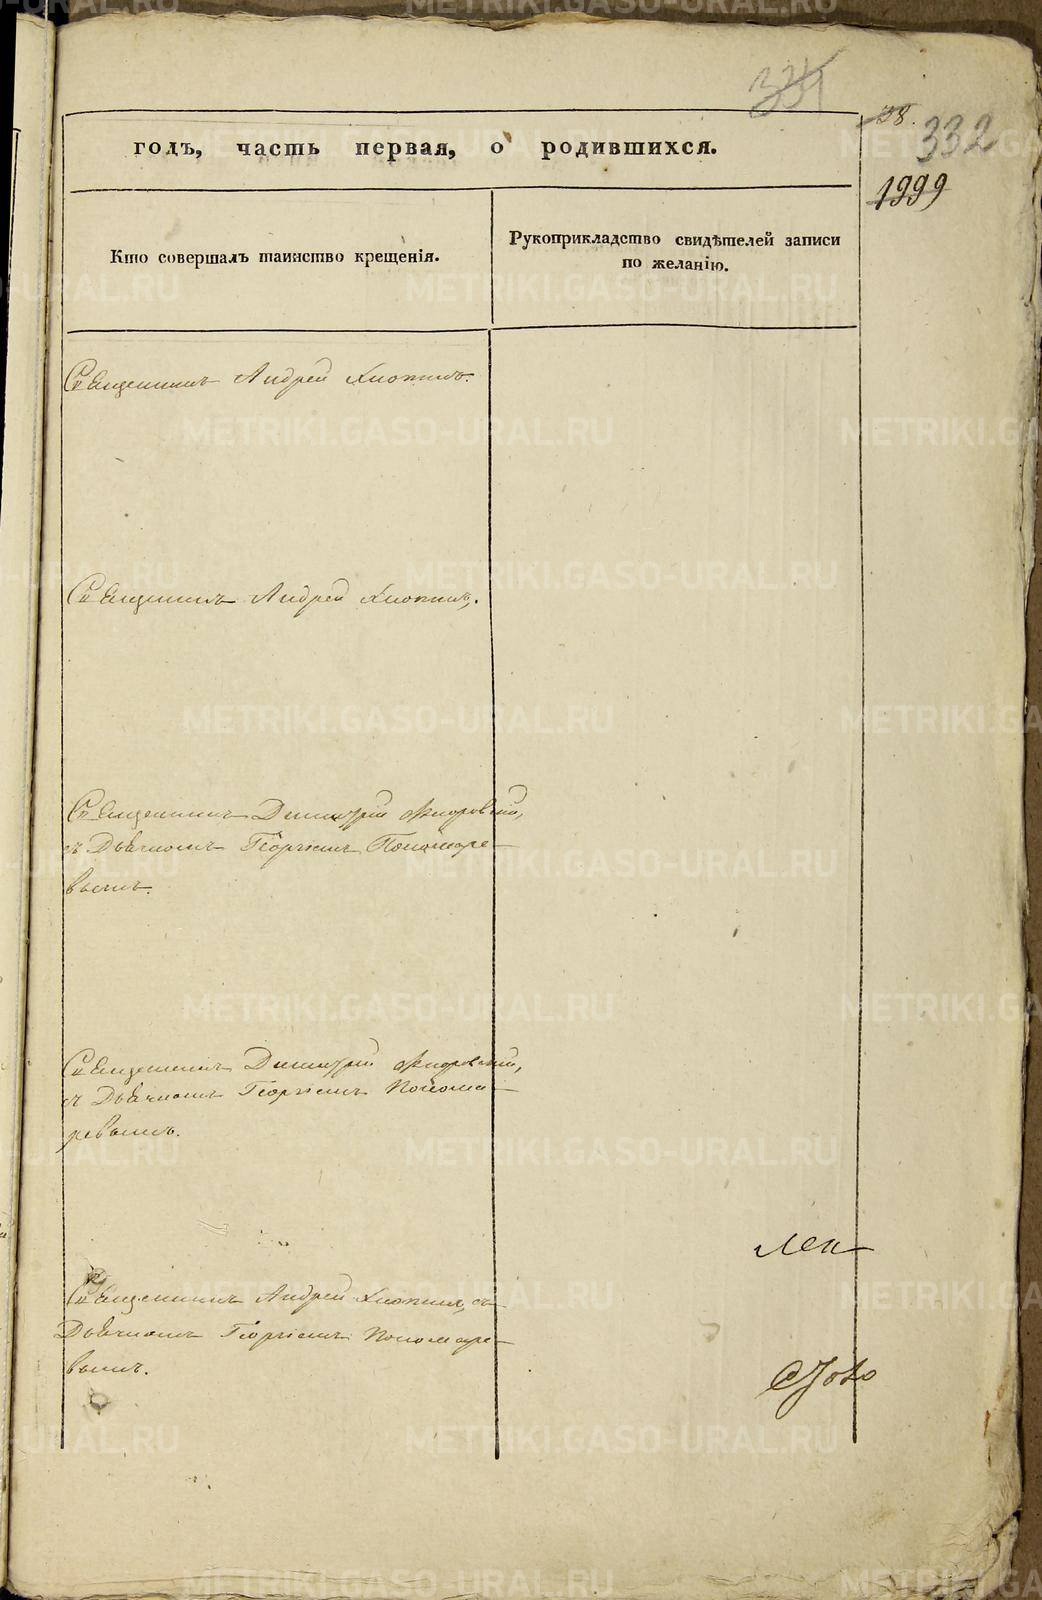 332
1999
годъ, часть первая, о родившихся.
Кто совершалъ таинство крещенія.
Рукоприкладство свидѣтелей записи
по желанію.
Священникъ Андрей
Священникъ Андрей
Священникъ Димитрій
съ Дьячкомъ Георгіемъ Пономаре-
вымъ.
Священникъ Димитрій
съ Дьячкомъ Георгіемъ Понома-
ревымъ.
Священникъ Андрей съ
Дьячкомъ Георгіемъ Пономаре-
вымъ.
METRIKI.GASO-URAL.RU